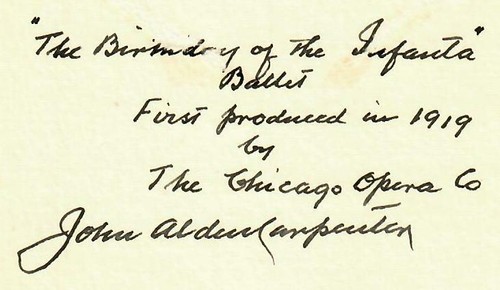 "The Birthday of the Infanta"
Ballet
First produced in 1919
by
The Chicago Opera Co
John Alden Carpenter